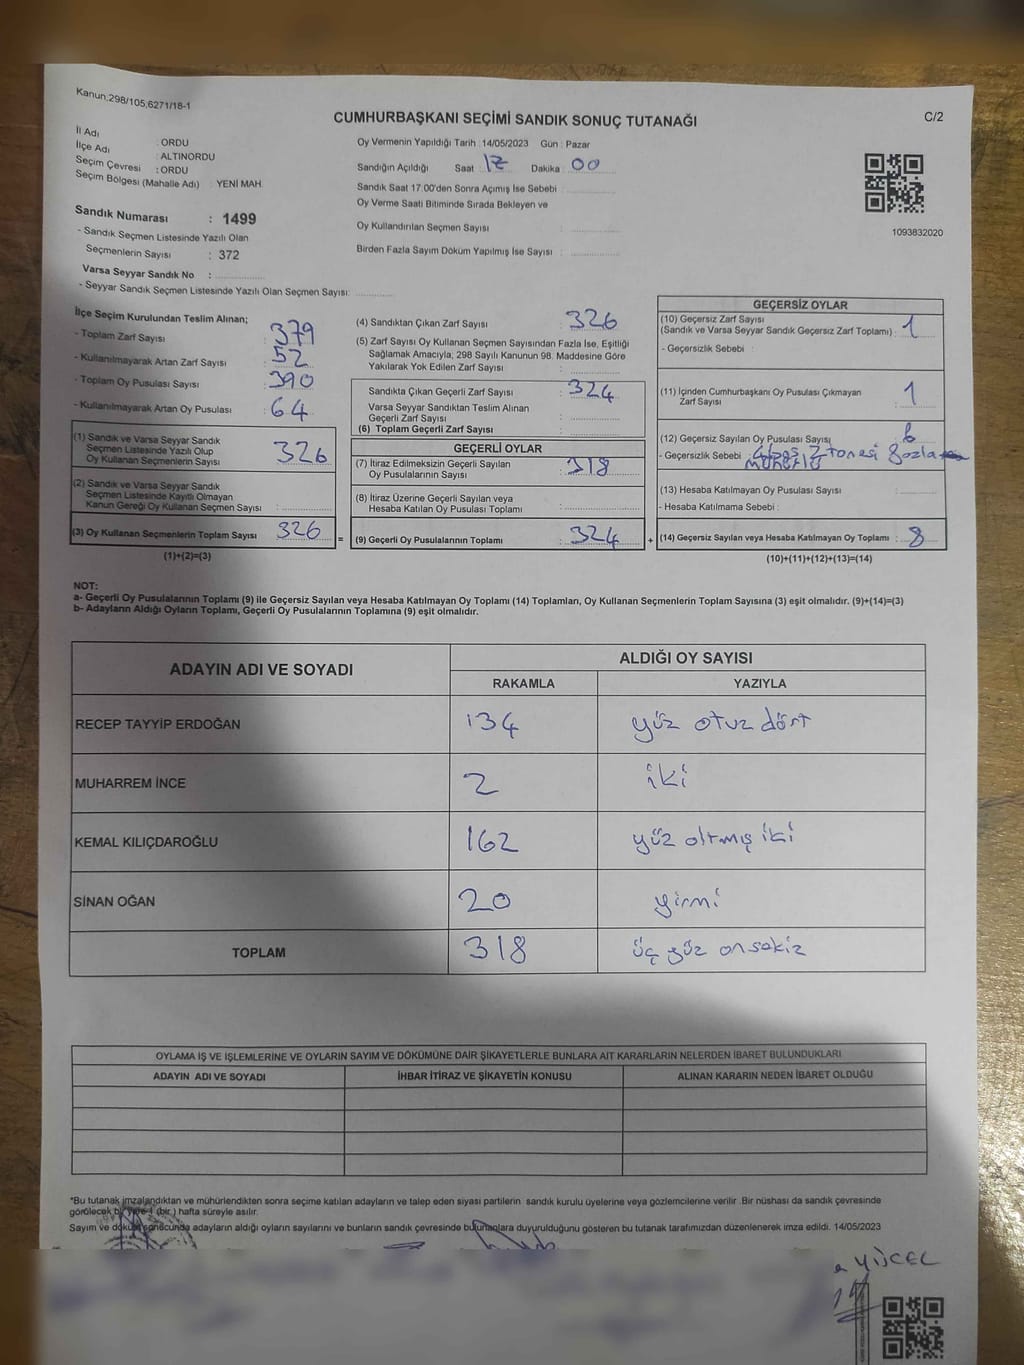 Kanun:298/105,6271/18-1
C/2
CUMHURBAŞKANI SEÇİMİ SANDIK SONUÇ TUTANAĞI
İl Adı : ORDU
İlçe Adı : ALTINORDU
Seçim Çevresi : ORDU
Seçim Bölgesi (Mahalle Adı) : YENİ MAH.
Oy Vermenin Yapıldığı Tarih : 14/05/2023 Gün : Pazar
Sandığın Açıldığı Saat 17 Dakika : 00
Sandık Saat 17.00'den Sonra Açımış İse Sebebi :
Oy Verme Saati Bitiminde Sırada Bekleyen ve
Oy Kullandırılan Seçmen Sayısı :
Birden Fazla Sayım Döküm Yapılmış İse Sayısı :
1093832020
Sandık Numarası : 1499
- Sandık Seçmen Listesinde Yazılı Olan
Seçmenlerin Sayısı : 372
Varsa Seyyar Sandık No :
- Seyyar Sandık Seçmen Listesinde Yazılı Olan Seçmen Sayısı:
İlçe Seçim Kurulundan Teslim Alınan;
- Toplam Zarf Sayısı : 379
- Kullanılmayarak Artan Zarf Sayısı : 52
- Toplam Oy Pusulası Sayısı : 390
- Kullanılmayarak Artan Oy Pusulası : 64
(1) Sandık ve Varsa Seyyar Sandık
Seçmen Listesinde Yazılı Olup
Oy Kullanan Seçmenlerin Sayısı : 326
(2) Sandık ve Varsa Seyyar Sandık
Seçmen Listesinde Kayıtlı Olmayan
Kanun Gereği Oy Kullanan Seçmen Sayısı :
(3) Oy Kullanan Seçmenlerin Toplam Sayısı : 326
(1)+(2)=(3)
(4) Sandıktan Çıkan Zarf Sayısı : 326
(5) Zarf Sayısı Oy Kullanan Seçmen Sayısından Fazla İse, Eşitliği
Sağlamak Amacıyla, 298 Sayılı Kanunun 98. Maddesine Göre
Yakılarak Yok Edilen Zarf Sayısı :
Sandıkta Çıkan Geçerli Zarf Sayısı : 324
Varsa Seyyar Sandıktan Teslim Alınan
Geçerli Zarf Sayısı :
(6) Toplam Geçerli Zarf Sayısı :
GEÇERLİ OYLAR
(7) İtiraz Edilmeksizin Geçerli Sayılan
Oy Pusulalarının Sayısı : 318
(8) İtiraz Üzerine Geçerli Sayılan veya
Hesaba Katılan Oy Pusulası Toplamı :
= (9) Geçerli Oy Pusulalarının Toplamı : 324 +
GEÇERSİZ OYLAR
(10) Geçersiz Zarf Sayısı
(Sandık ve Varsa Seyyar Sandık Geçersiz Zarf Toplamı) : 1
- Geçersizlik Sebebi :
(11) İçinden Cumhurbaşkanı Oy Pusulası Çıkmayan
Zarf Sayısı : 1
(12) Geçersiz Sayılan Oy Pusulası Sayısı : 6
- Geçersizlik Sebebi : 2 tanesi fazla
mühürlü
(13) Hesaba Katılmayan Oy Pusulası Sayısı :
- Hesaba Katılmama Sebebi :
(14) Geçersiz Sayılan veya Hesaba Katılmayan Oy Toplamı : 8
(10)+(11)+(12)+(13)=(14)
NOT:
a- Geçerli Oy Pusulalarının Toplamı (9) ile Geçersiz Sayılan veya Hesaba Katılmayan Oy Toplamı (14) Toplamları, Oy Kullanan Seçmenlerin Toplam Sayısına (3) eşit olmalıdır. (9)+(14)=(3)
b- Adayların Aldığı Oyların Toplamı, Geçerli Oy Pusulalarının Toplamına (9) eşit olmalıdır.
ADAYIN ADI VE SOYADI
ALDIĞI OY SAYISI
RAKAMLA YAZIYLA
RECEP TAYYİP ERDOĞAN 134 yüz otuz dört
MUHARREM İNCE 2 iki
KEMAL KILIÇDAROĞLU 162 yüz altmış iki
SİNAN OĞAN 20 yirmi
TOPLAM 318 üç yüz onsekiz
OYLAMA İŞ VE İŞLEMLERİNE VE OYLARIN SAYIM VE DÖKÜMÜNE DAİR ŞİKAYETLERLE BUNLARA AİT KARARLARIN NELERDEN İBARET BULUNDUKLARI
ADAYIN ADI VE SOYADI İHBAR İTİRAZ VE ŞİKAYETİN KONUSU ALINAN KARARIN NEDEN İBARET OLDUĞU
*Bu tutanak imzalandıktan ve mühürlendikten sonra seçime katılan adayların ve talep eden siyasi partilerin sandık kurulu üyelerine veya gözlemcilerine verilir. Bir nüshası da sandık çevresinde
görülecek bir yere 1 (bir) hafta süreyle asılır.
Sayım ve döküm sonucunda adayların aldığı oyların sayılarını ve bunların sandık çevresinde bulunanlara duyurulduğunu gösteren bu tutanak tarafımızdan düzenlenerek imza edildi. 14/05/2023
YÜCEL